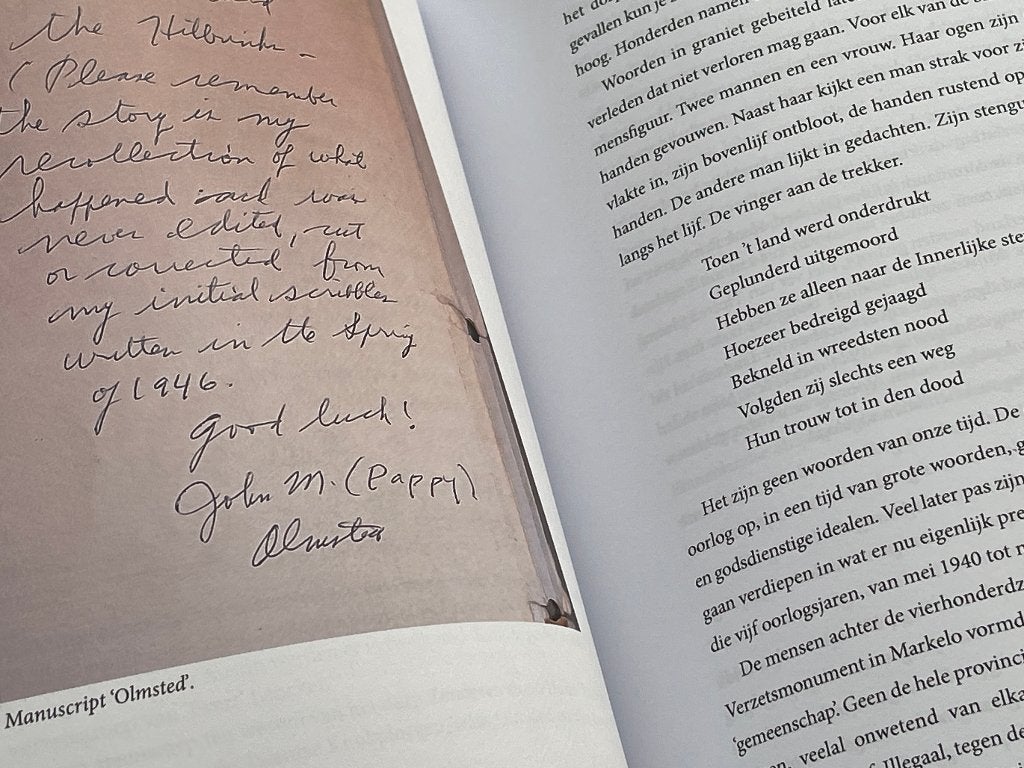 the Hilbrink –
(Please remember
the story is my
recollection of what
happened and was
never edited, cut
or corrected from
my initial scribbles
written in the Spring
of 1946.
Good luck!
John M. (Pappy)
Olmsted
Manuscript ‘Olmsted’.
het
gevallen kun je
hoog. Honderden namen
Woorden in graniet gebeiteld
verleden dat niet verloren mag gaan. Voor elk van de
mensfiguur. Twee mannen en een vrouw. Haar ogen zijn
handen gevouwen. Naast haar kijkt een man strak voor
vlakte in, zijn bovenlijf ontbloot, de handen rustend op
handen. De andere man lijkt in gedachten. Zijn
langs het lijf. De vinger aan de trekker.
Toen ’t land werd onderdrukt
Geplunderd uitgemoord
Hebben ze alleen naar de Innerlijke
Hoezeer bedreigd gejaagd
Bekneld in wreedsten nood
Volgden zij slechts een weg
Hun trouw tot in den dood
Het zijn geen woorden van onze tijd. De
oorlog op, in een tijd van grote woorden,
en godsdienstige idealen. Veel later pas zijn
gaan verdiepen in wat er nu eigenlijk
die vijf oorlogsjaren, van mei 1940 tot
De mensen achter de
Verzetsmonument in Markelo
‘gemeenschap’. Geen de hele
veelal onwetend van
Illegaal, tegen de